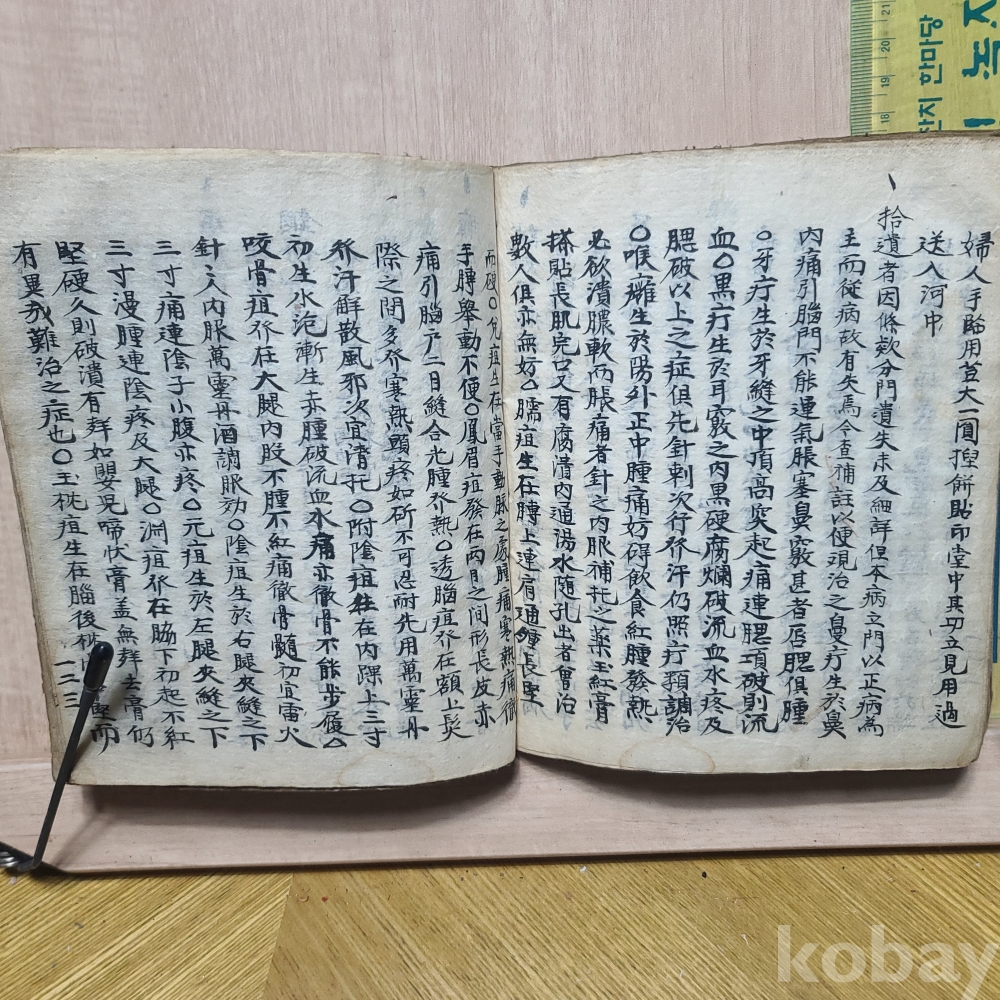 婦人手臨用荳大一圓捏餅貼印堂中其功立見用過
送入河中
拾遺者因條欵分門遺失未及細詳但本病立門以正病為
主而從病故有失焉今查補註以便現治之鼻疔生於鼻
内痛引腦門不能運氣脹塞鼻竅甚者唇腮俱腫
○牙疔生於牙縫之中頂高突起痛連腮項破則流
血○黒疔生於耳竅之内黒硬腐爛破流血水疼及
腮破以上之症俱先針刺次行发汗仍照疔預調治
○喉癰生於陽外正中腫痛妨碍飲食紅腫發熱
必欲潰膿軟而脹痛者針之内服補托之薬玉紅膏
搽貼長肌完口又有腐潰内通湯水随孔出者曾治
數人俱亦無妨○臑疽生在膊上連肩通腫長堅
而硬○兌疽生在當手動脉之處腫痛寒熱痛徹
手膊舉動不便○鳳眉疽發在兩目之間形長皮赤
痛引腦戸二目縫合光腫发熱○透腦疽发在額上髮
際之間多发寒熱頭疼如斫不可忍耐先用萬霊丹
发汗解散風邪次宜清托○附陰疽在内踝上三寸
初生水泡漸生赤腫破流血水痛亦徹骨不能步履○
咬骨疽发在大腿内股不腫不紅痛徹骨髓初宜雷火
針之内服萬霊丹酒調服効○陰疽生於右腿夾縫之下
三寸痛連陰子小腹亦疼○元疽生於左腿夾縫之下
三寸漫腫連陰疼及大腿○淵疽发在脇下初起不紅
堅硬久則破潰有聲如嬰兒啼伏膏盖無聲去膏仍
有異哉難治之症也○玉枕疽生在腦後枕堅而
一二三
농
한마당
21
20
19
18
kobay